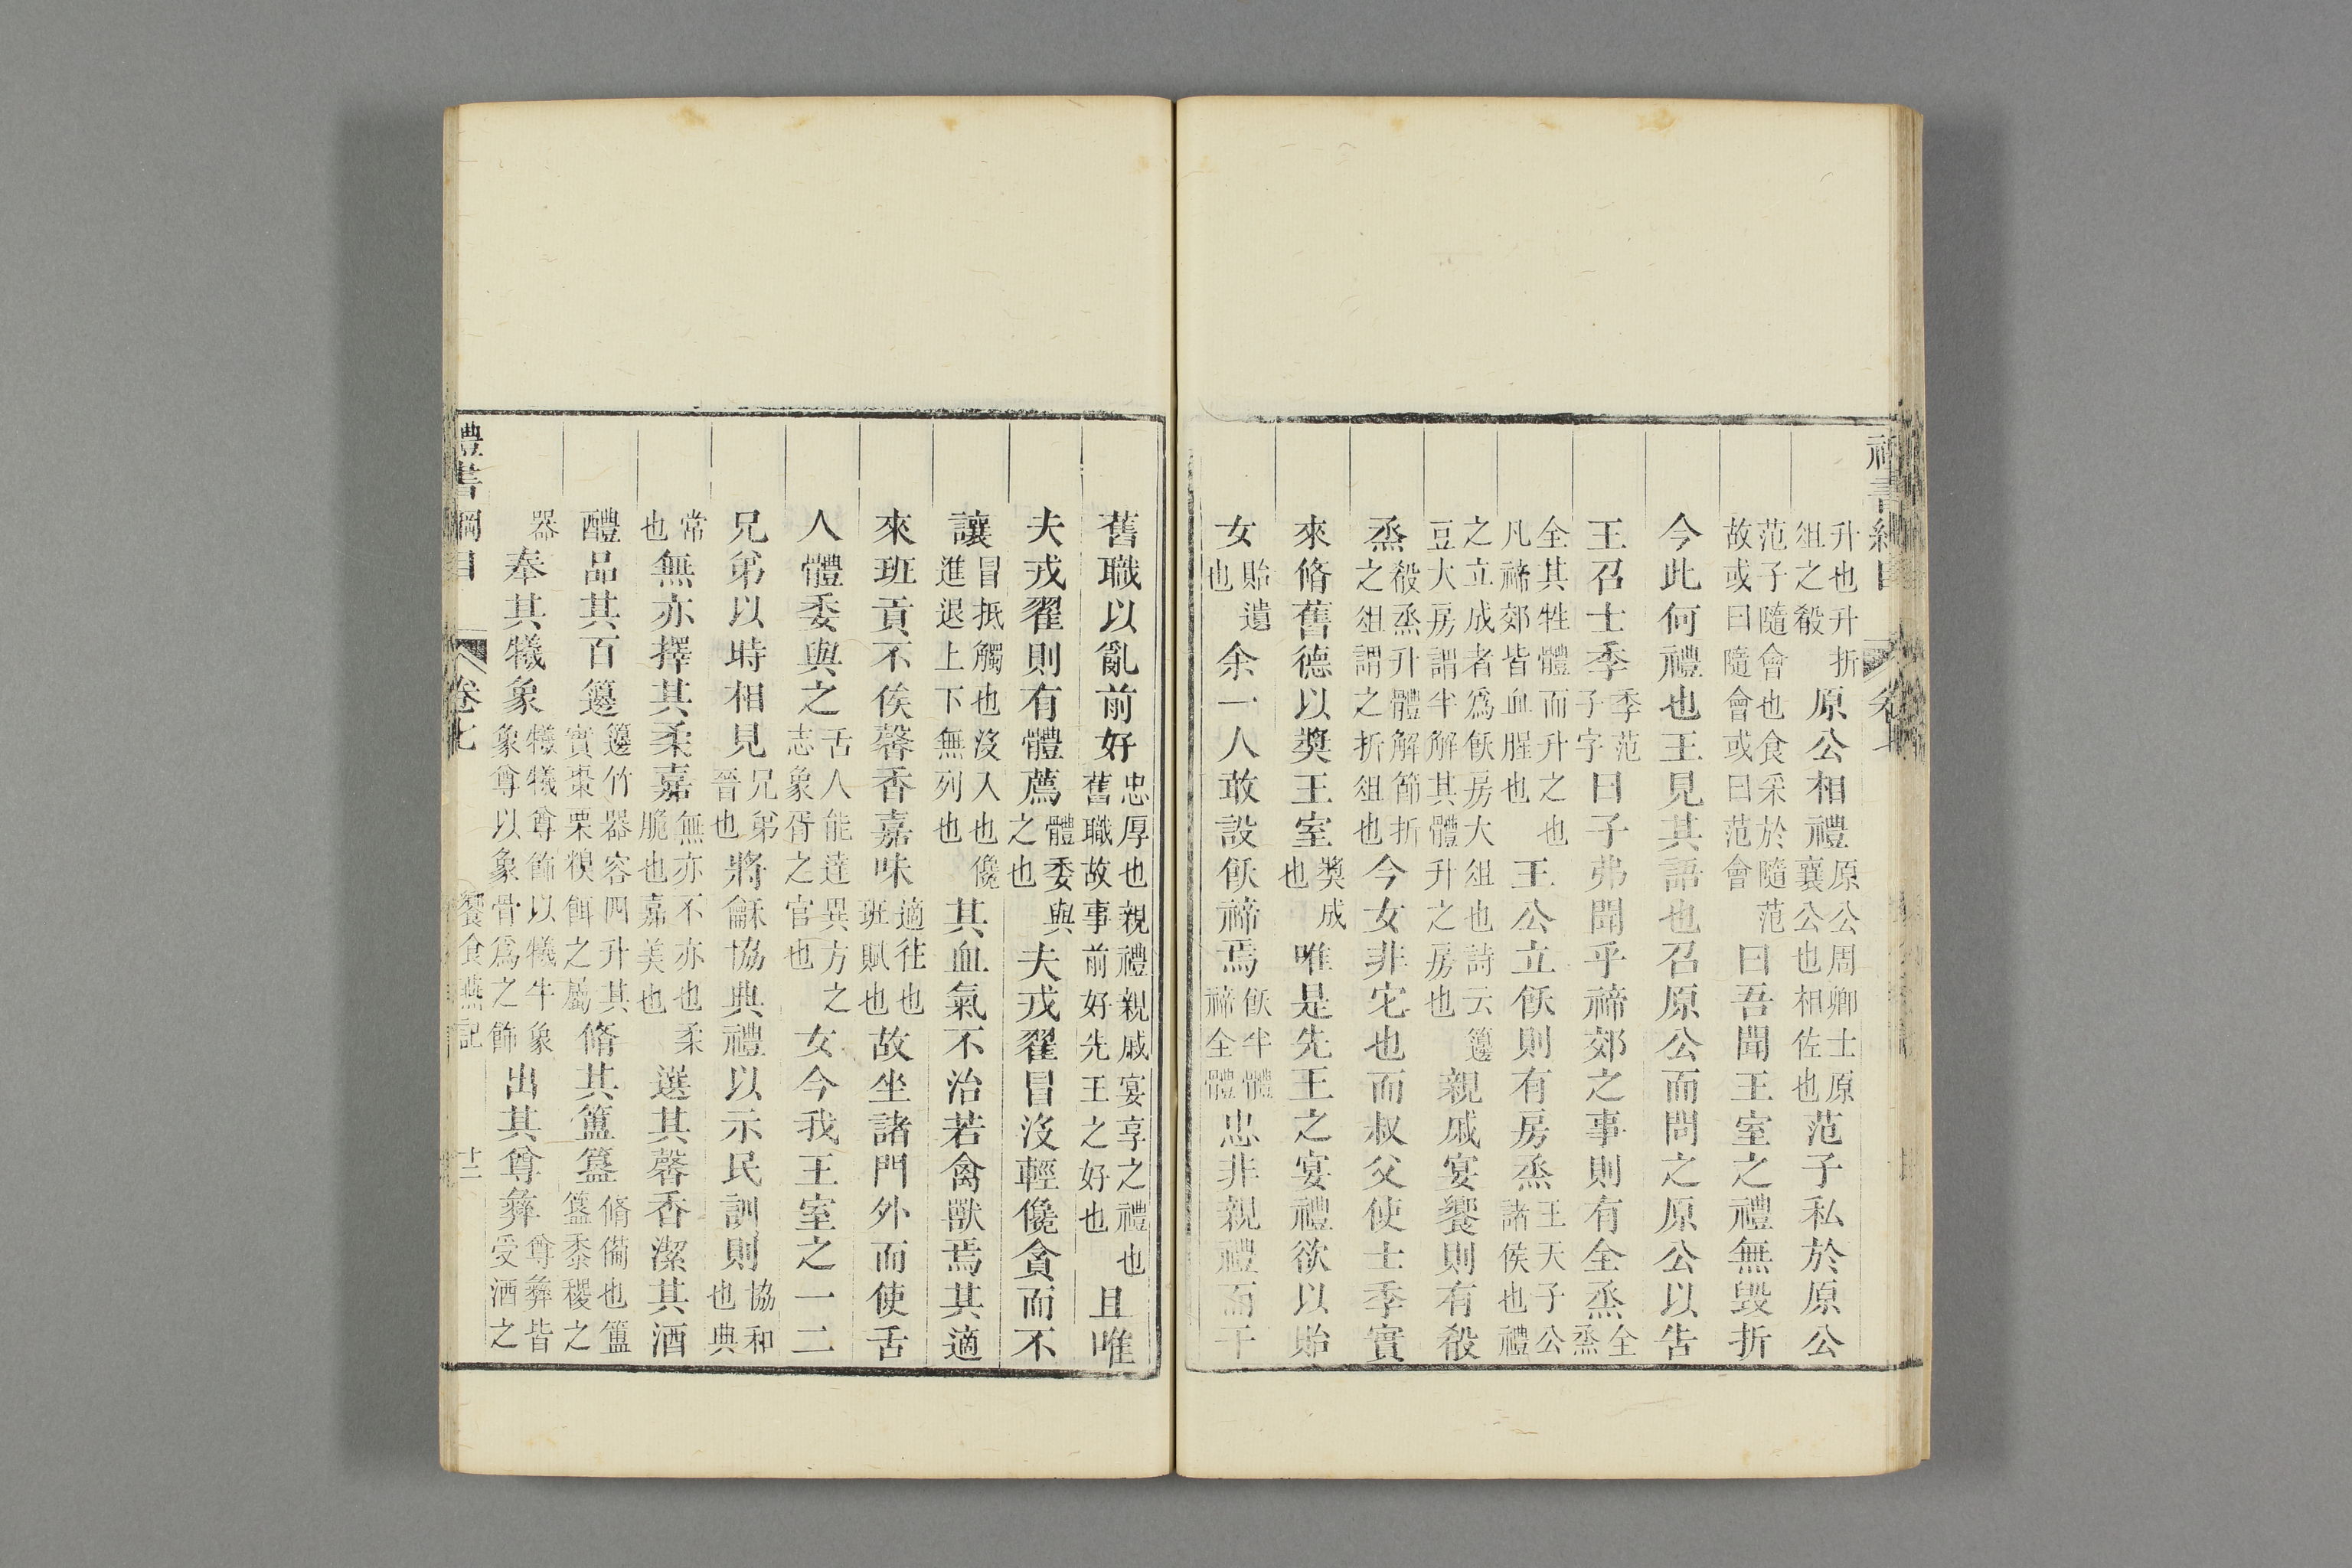 升也升折俎之殽原公相禮原公周卿士原襄公也相佐也范子私於原公
范子隨會也食采於隨范故或曰隨會或曰范會曰吾聞王室之禮無毀折
今此何禮也王見其語也召原公而問之原公以告
王召士季季范子字曰子弗聞乎禘郊之事則有全烝全烝
全其牲體而升之也凡禘郊皆血腥也王公立飫則有房烝王天子公諸侯也禮
之立成者爲飫房大俎也詩云籩豆大房謂半解其體升之房也親戚宴饗則有殽
烝殽烝升體解節折之俎謂之折俎也今女非它也而叔父使士季實
來脩舊德以獎王室獎成也唯是先王之宴禮欲以貽
女貽遺也余一人敢設飫禘焉飫半體禘全體忠非親禮而干
舊職以亂前好忠厚也親禮親戚宴享之禮也舊職故事前好先王之好也且唯
夫戎翟則有體薦體委與之也夫戎翟冒沒輕儳貪而不
讓冒抵觸也沒入也儳進退上下無列也其血氣不治若禽獸焉其適
來班貢不俟馨香嘉味適往也班賦也故坐諸門外而使舌
人體委與之舌人能達異方之志象胥之官也女今我王室之一二
兄弟以時相見兄弟晉也將龢協典禮以示民訓則協和也典
常也無亦擇其柔嘉無亦不亦也柔脆也嘉美也選其馨香潔其酒
醴品其百籩籩竹器容四升其實棗栗糗餌之屬脩其簠簋脩備也簠簋黍稷之
器奉其犧象犧犧尊飾以犧牛象象尊以象骨爲之飾出其尊彝尊彝皆受酒之
禮書綱目 卷七 饗食燕記 十二